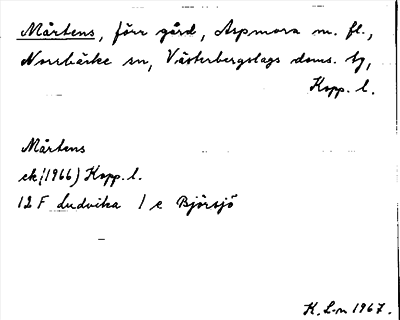 Mårtens, förr gård, Aspmora m. fl.,
Norrbärke sn, Västerbergslags doms. tg,
Kopp. l.
Mårtens
ek (1966) Kopp. l.
12 F Ludvika 1 e Björsjö
K. L-n 1967.